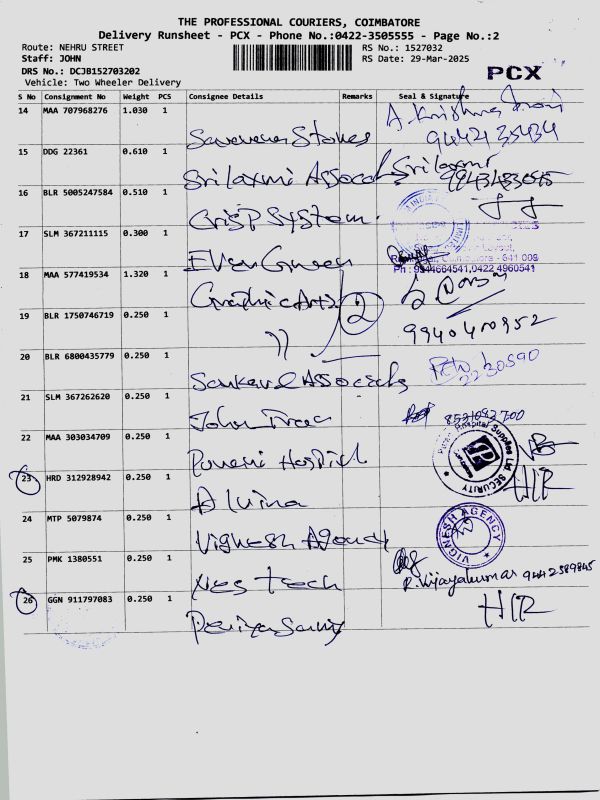 THE PROFESSIONAL COURIERS, COIMBATORE
Delivery Runsheet - PCX - Phone No.:0422-3505555 - Page No.:2
Route: NEHRU STREET RS No.: 1527032
Staff: JOHN RS Date: 29-Mar-2025
DRS No.: DCJB152703202 PCX
Vehicle: Two Wheeler Delivery
S No Consignment No Weight PCS Consignee Details Remarks Seal & Signature
14 MAA 707968276 1.030 1 Stores 94421 35434
15 DDG 22361 0.610 1 Sri laxmi Srilaxmi
16 BLR 5005247584 0.510 1 Crisp System
17 SLM 367211115 0.300 1 Ever Green
Ph : 9944664541,0422 4960541
18 MAA 577419534 1.320 1 Graphic Arts 2
19 BLR 1750746719 0.250 1 " 9940400952
20 BLR 6800435779 0.250 1 2230590
21 SLM 367262620 0.250 1 John
22 MAA 303034709 0.250 1 Hospital Hospital Supplies SECURITY
23 HRD 312928942 0.250 1 Aluina H/R
24 MTP 5079874 0.250 1 Vignesh Agency VIGNESH AGENCY
25 PMK 1380551 0.250 1 tech R. Vijayakumar 9442589845
26 GGN 911797083 0.250 1 Periyasamy H/R